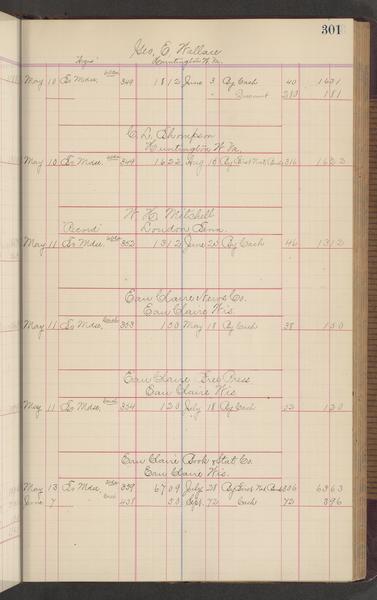 301
Geo. E. Wallace
"Argus" Huntington W. Va.
May 10 To Mdse. 349 1812 June 3 By Cash 40 1631
" Discount 283 181
C. L. Thompson
Huntington W. Va.
May 10 To Mdse 349 1622 Aug 16 By First Nat Bank 316 1622
W. H. Mitchell
"Record" London Tenn.
May 11 To Mdse. 352 1312 June 20 By Cash 46 1312
Eau Claire News Co.
Eau Claire Wis.
May 11 To Mdse. 353 150 May 18 By Cash 38 150
Eau Claire Free Press
Eau Claire Wis
May 11 To Mdse. 354 120 July 18 By Cash 52 120
Eau Claire Book & Stat Co.
Eau Claire Wis.
May 13 To Mdse 359 6709 July 28 By First Nat Bank 306 6363
June 7 438 50 Sept. Cash 72 396